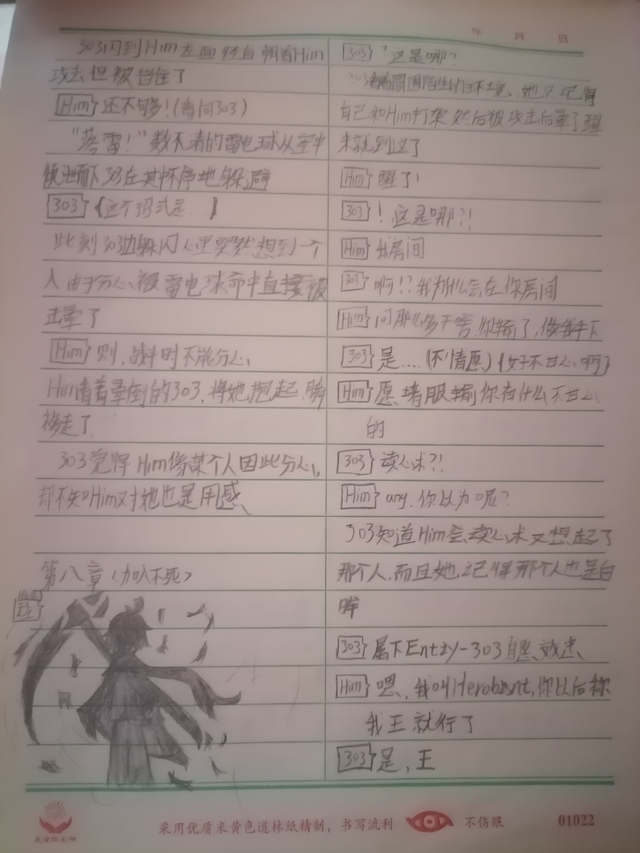 年 月 日
303闪到Him左面 径自朝着Him
攻去但被挡住了
Him} 还不够!(看向303)
"落雷!"数不清的雷电球从空中
下 303在其怀停地躲避
303}《这个招式是...》
此刻303边躲闪 心里突然想到一个
人 由于分心,被雷电球命中直接被
击晕了
Him} 则,战斗时不能分心,
Him看着晕倒的303,将她抱起,瞬
移走了
303觉得Him像某个人因此分心,
却不知Him对她也是同感、
第八章《加入不死》
303} "这是哪?
看周围陌生的环境,她只记得
自己和Him打架 然后被攻击后晕了醒
来就到这了
Him} 醒了!
303} !这是哪?!
Him} 我房间
303} 啊!?我为什么会在你房间
Him} 问那么多干啥,你输了,做我手下
303} 是....(不情愿)《好不甘心啊》
Him} 愿堵服输你有什么不甘心
的
303} 读心术?!
Him} ang.你以为呢?
303知道Him会读心术又想起了
那个人,而且她记得那个人也是白
眸
303} 属下Entzy-303自愿效忠
Him} 嗯,我叫Herobrnt,你以后称
我王就行了
303} 是,王
采用优质米黄色道林纸精制,书写流利 不伤眼 01022